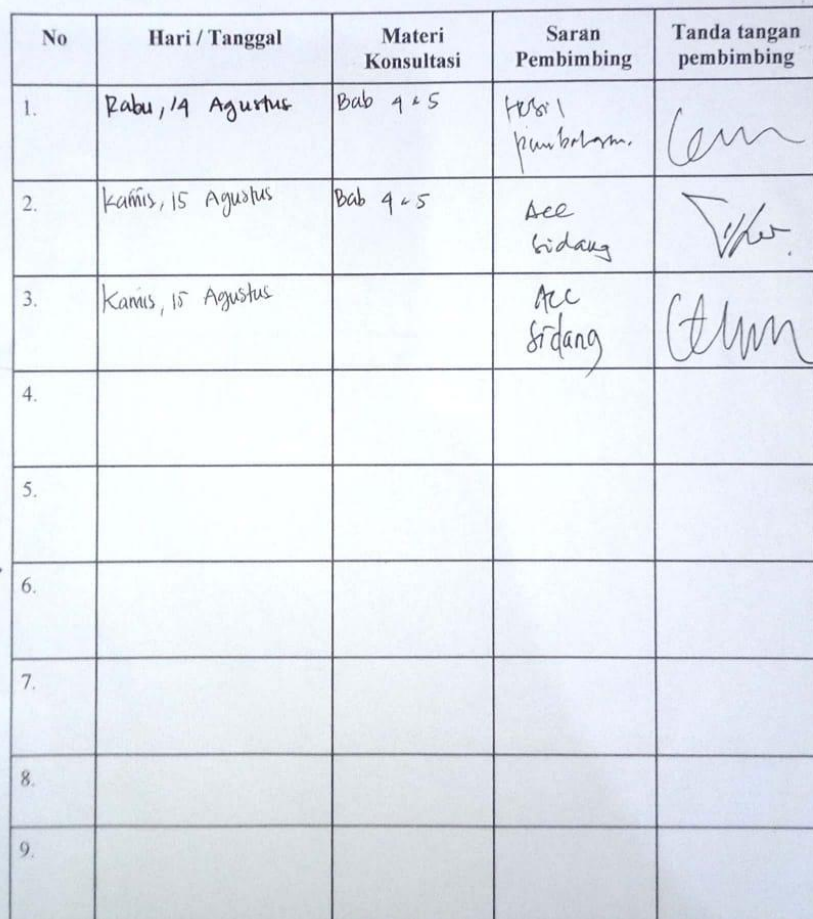 No Hari / Tanggal Materi Konsultasi Saran Pembimbing Tanda tangan pembimbing
1. Rabu, 14 Agustus Bab 4 & 5
2. Kamis, 15 Agustus Bab 4 & 5 Acc Sidang
3. Kamis, 15 Agustus Acc Sidang
4.
5.
6.
7.
8.
9.